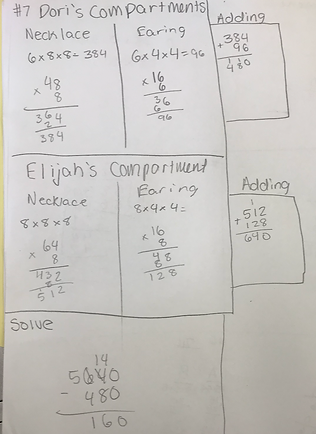 #7 Dori's Compartments
Necklace
6x8x8=384
48
x 8
364
2
384
Earing
6x4x4=96
x16
6
36
6
96
Adding
384
+ 96
1 1
480
Elijah's Compartment
Necklace
8x8x8
64
x 8
432
8
512
Earing
8x4x4=
x16
8
48
8
128
Adding
1
512
+128
640
Solve
14
5640
- 480
160